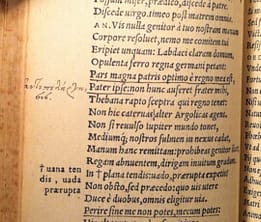 Discede uirgo. timeo post matrem omnia.
AN. Vis nulla genitor à tuo nostram manum
Corpore resoluet, nemo me comitem tibi
Eripiet unquam: Labdaci claram domum,
Opulenta ferro regna germani petant.
Pars magna patris optimo è regno mea est,
Pater ipse: non hunc auferet frater mihi,
Thebana rapto sceptra qui regno tenet:
Non hic cateruas alter Argolicas agens.
Non si reuulso Iupiter mundo tonet,
Mediumq; nostros fulmen in nexus cadat,
Manum hanc remittam: prohibeas genitor licet
Regam abnuentem, dirigam inuitum gradum.
In † plana tendis: uado, prærupta expetis?
Non obsto, sed præcedo: quo uis utere
Duce duobus, omnis eligitur uia.
Perire sine me non potes, mecum potes:
† uana ten
dis, uada
prærupta